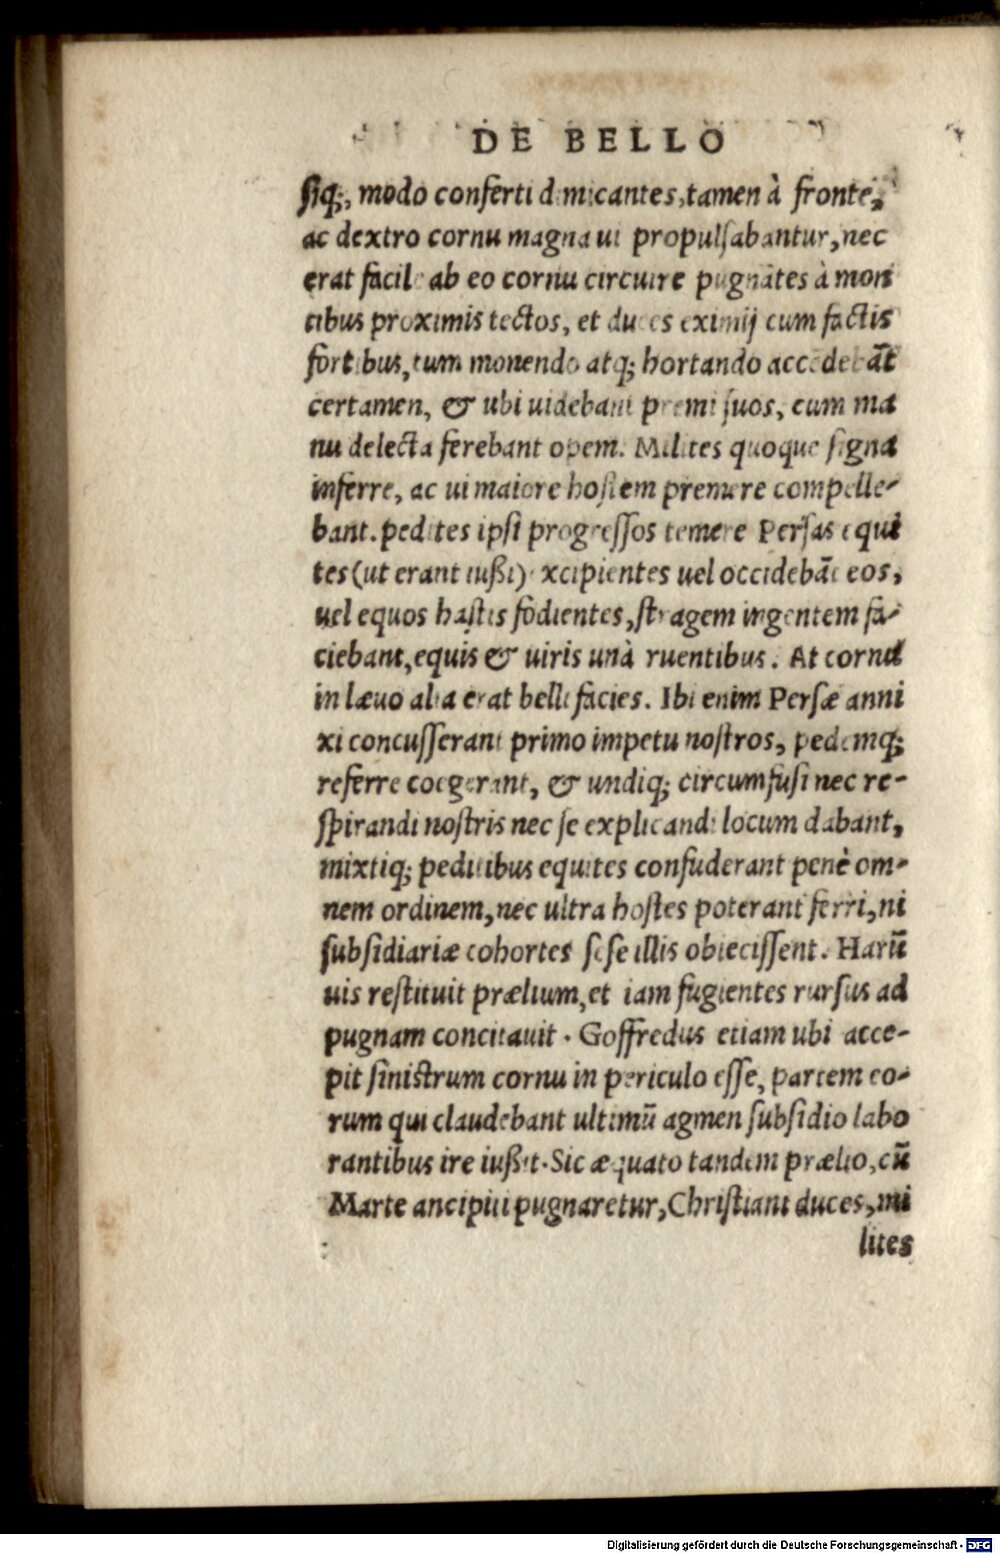 DE BELLO
siq;, modo conferti dimicantes, tamen à fronte,
ac dextro cornu magna ui propulsabantur, nec
erat facile ab eo cornu circuire pugnātes à mon
tibus proximis tectos, et duces eximij cum factis
fortibus, tum monendo atq; hortando accedebāt
certamen, & ubi uidebant premi suos, cum ma
nu delecta ferebant opem. Milites quoque signa
inferre, ac ui maiore hostem premere compelle-
bant. pedites ipsi progressos temere Persas equi
tes (ut erant iussi) excipientes uel occidebāt eos,
uel equos hastis fodientes, stragem ingentem fa-
ciebant, equis & uiris unà ruentibus. At cornu
in læuo alia erat belli facies. Ibi enim Persæ anni
xi concusserant primo impetu nostros, pedemq;
referre coegerant, & undiq; circumfusi nec re-
spirandi nostris nec se explicandi locum dabant,
mixtiq; peditibus equites confuderant penè om-
nem ordinem, nec ultra hostes poterant ferri, ni
subsidiariæ cohortes sese illis obiecissent. Harū
uis restituit prælium, et iam fugientes rursus ad
pugnam concitauit. Goffredus etiam ubi acce-
pit sinistrum cornu in periculo esse, partem eo-
rum qui claudebant ultimū agmen subsidio labo
rantibus ire iussit. Sic æquato tandem prælio, cū
Marte ancipiti pugnaretur, Christiani duces, mi
lites
Digitalisierung gefördert durch die Deutsche Forschungsgemeinschaft - DFG